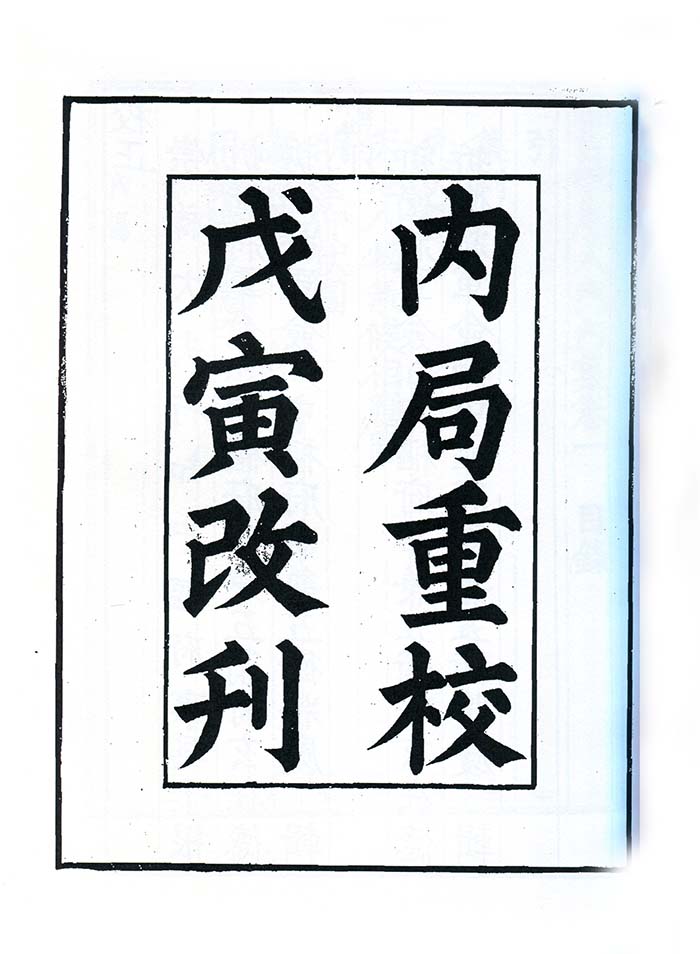 内局重校
戊寅改刊